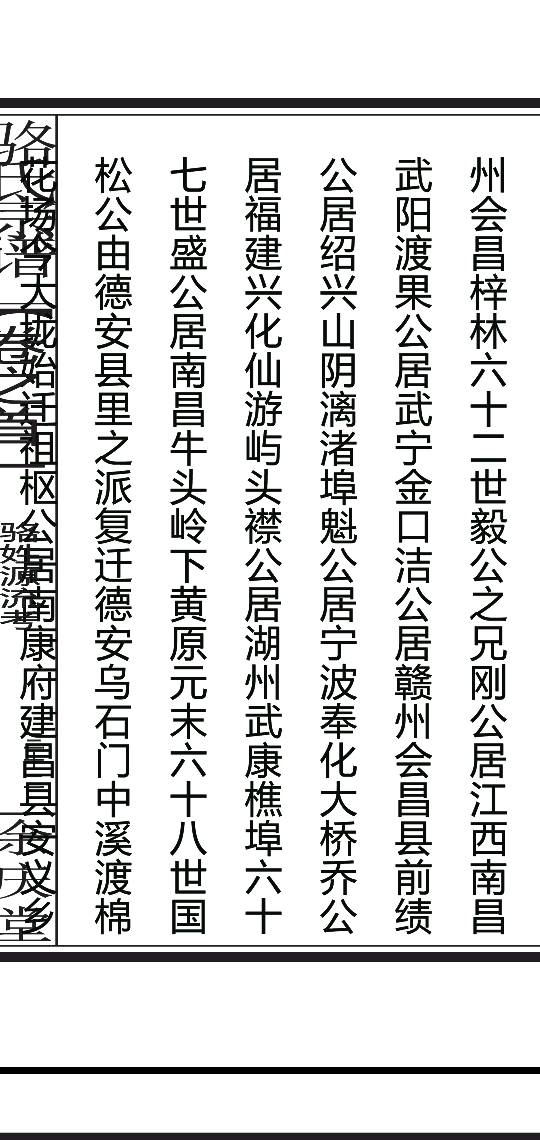 州会昌梓林六十二世毅公之兄刚公居江西南昌
武阳渡果公居武宁金口洁公居赣州会昌县前绩
公居绍兴山阴漓渚埠魁公居宁波奉化大桥乔公
居福建兴化仙游屿头襟公居湖州武康樵埠六十
七世盛公居南昌牛头岭下黄原元末六十八世国
松公由德安县里之派复迁德安乌石门中溪渡棉
花扬 大珑始迁祖枢公居南康府建昌县安义乡
骆氏宗谱【卷之首】
骆姓源流考
余庆堂